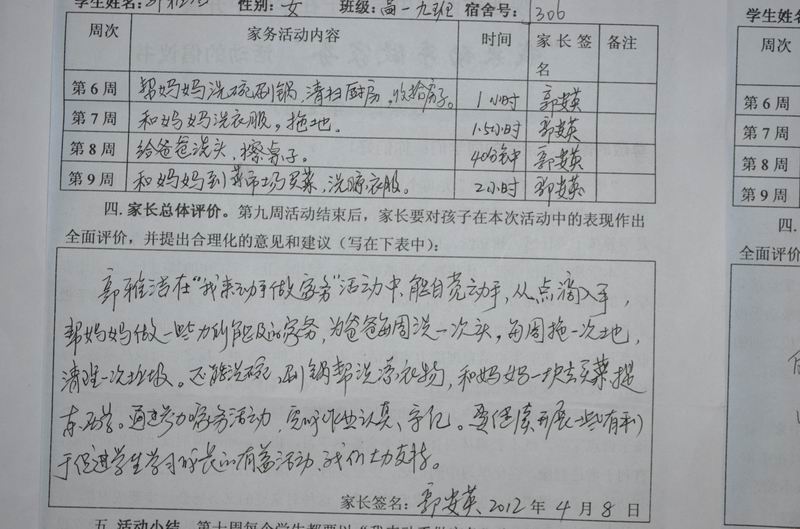 学生姓名: 性别: 女 班级: 高一九班 宿舍号: 306
周次 家务活动内容 时间 家长签名 备注
第6周 帮妈妈洗碗刷锅,清扫厨房,收拾房子。 1小时 郭安英
第7周 和妈妈洗衣服,拖地。 1.5小时 郭安英
第8周 给爸爸洗头,擦桌子。 40分钟 郭安英
第9周 和妈妈到菜市场买菜,洗晾衣服。 2小时 郭安英
四. 家长总体评价。第九周活动结束后,家长要对孩子在本次活动中的表现作出
全面评价,并提出合理化的意见和建议(写在下表中):
郭雅洁在“我来动手做家务”活动中,能自觉动手,从点滴入手,
帮妈妈做一些力所能及的家务,为爸爸每周洗一次头,每周拖一次地,
清理一次垃圾。还能洗碗,刷锅帮洗衣物,和妈妈一块去买菜提
东西等。通过劳力家务活动,完成作业认真、字迹。要继续开展一些有利
于促进学生学习成长的有益活动,我们大力支持。
家长签名: 郭安英 2012年4月8日
五. 活动小结。第十周每个学生都要以“我来动手做家务
学生姓名
周次
第6周
第7周
第8周
第9周
四.
全面评价